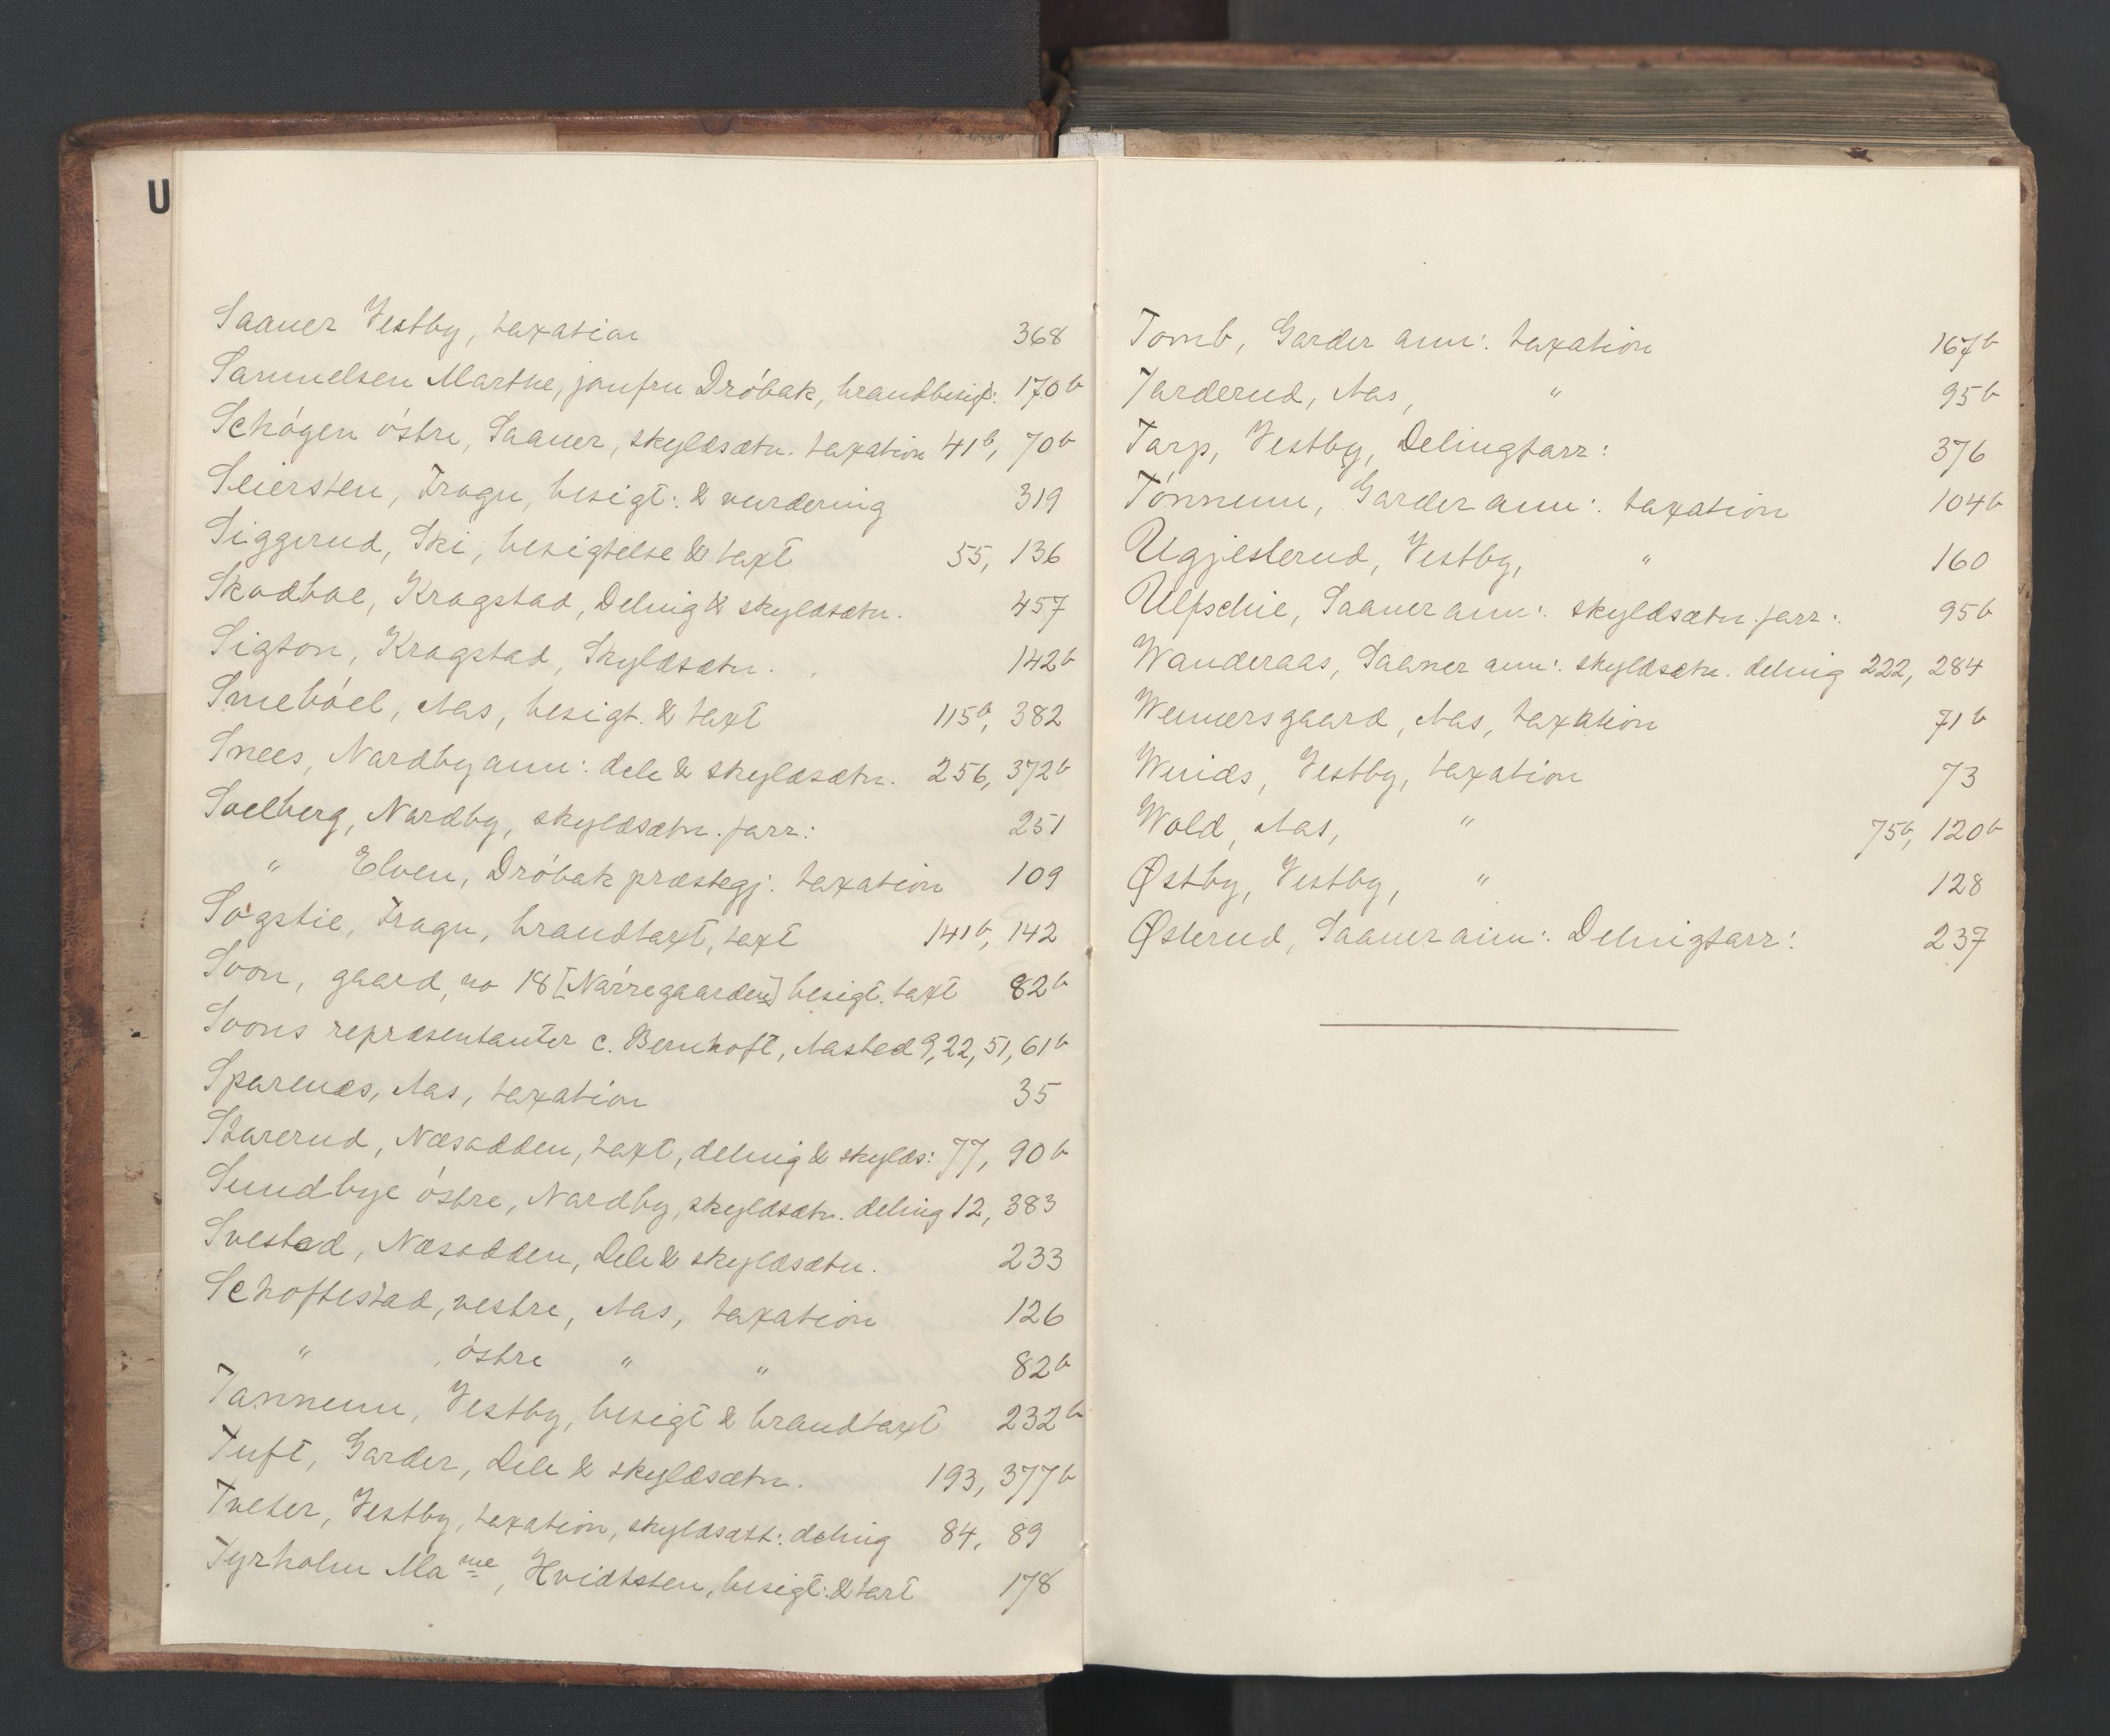 U
Saaner Vestby, taxation 368
Samuelsen Marthe, jomfru Dröbak, brandbesigt: 170b
Schögen östre, Saaner, skyldsætn. taxation 41b, 70b
Seiersten, Frogn, besigt: & vurdering 319
Siggerud, Ski, besigtelse & taxt 55, 136
Skodboe, Kragstad, Delnig & skyldsætn. 457
Sigton, Kragstad, Skyldsætn. 142b
Smeböel, Aas, besigt. & taxt 115b, 382
Snees, Nordby ann: dele & skyldsætn. 256, 372b
Soelberg, Nordby, skyldsætn. forr: 251
" Elven, Dröbak præstegj. taxation 109
Sogstie, Frogn, brandtaxt, taxt 141b, 142
Soon, gaard, no 18 [Nörregaarden] besigt. taxt 82b
Soons repræsentanter c. Bernhoft, Aasted 9, 22, 51, 61b
Sparenæs, Aas, taxation 35
Starerud, Næsodden, taxt, delnig & skylds: 77, 90b
Sundbye östre, Nordby, skyldsætn. deling 12, 383
Svestad, Næsodden, Dele & skyldsætn. 233
Schoftestad, vestre, Aas, taxation 126
" , östre " " 82b
Tannum, Vestby, besigt & brandtaxt 232b
Tuft, Garder, Dele & skyldsætn. 193, 377b
Tveter, Vestby, taxation, skyldsætt: delnig 84, 89
Tyrholm Mame, Hvidtsten, besigt: & taxt 178
Tomb, Garder ann: taxation 167b
Tarderud, Aas, " 95b
Tarp, Vestby, Delingforr: 376
Tönnum, Garder ann: taxation 104b
Ugjesterud, Vestby, " 160
Ulfschie, Saaner ann: skyldsætn. forr: 95b
Wanderaas, Saaner ann: skyldsætn. delnig 222, 284
Wemersgaard, Aas, taxation 71b
Weniæs, Vestby, taxation 73
Wold, Aas, " 75b, 120b
Østby, Vestby, " 128
Østerud, Saaner ann: Delnigforr: 237